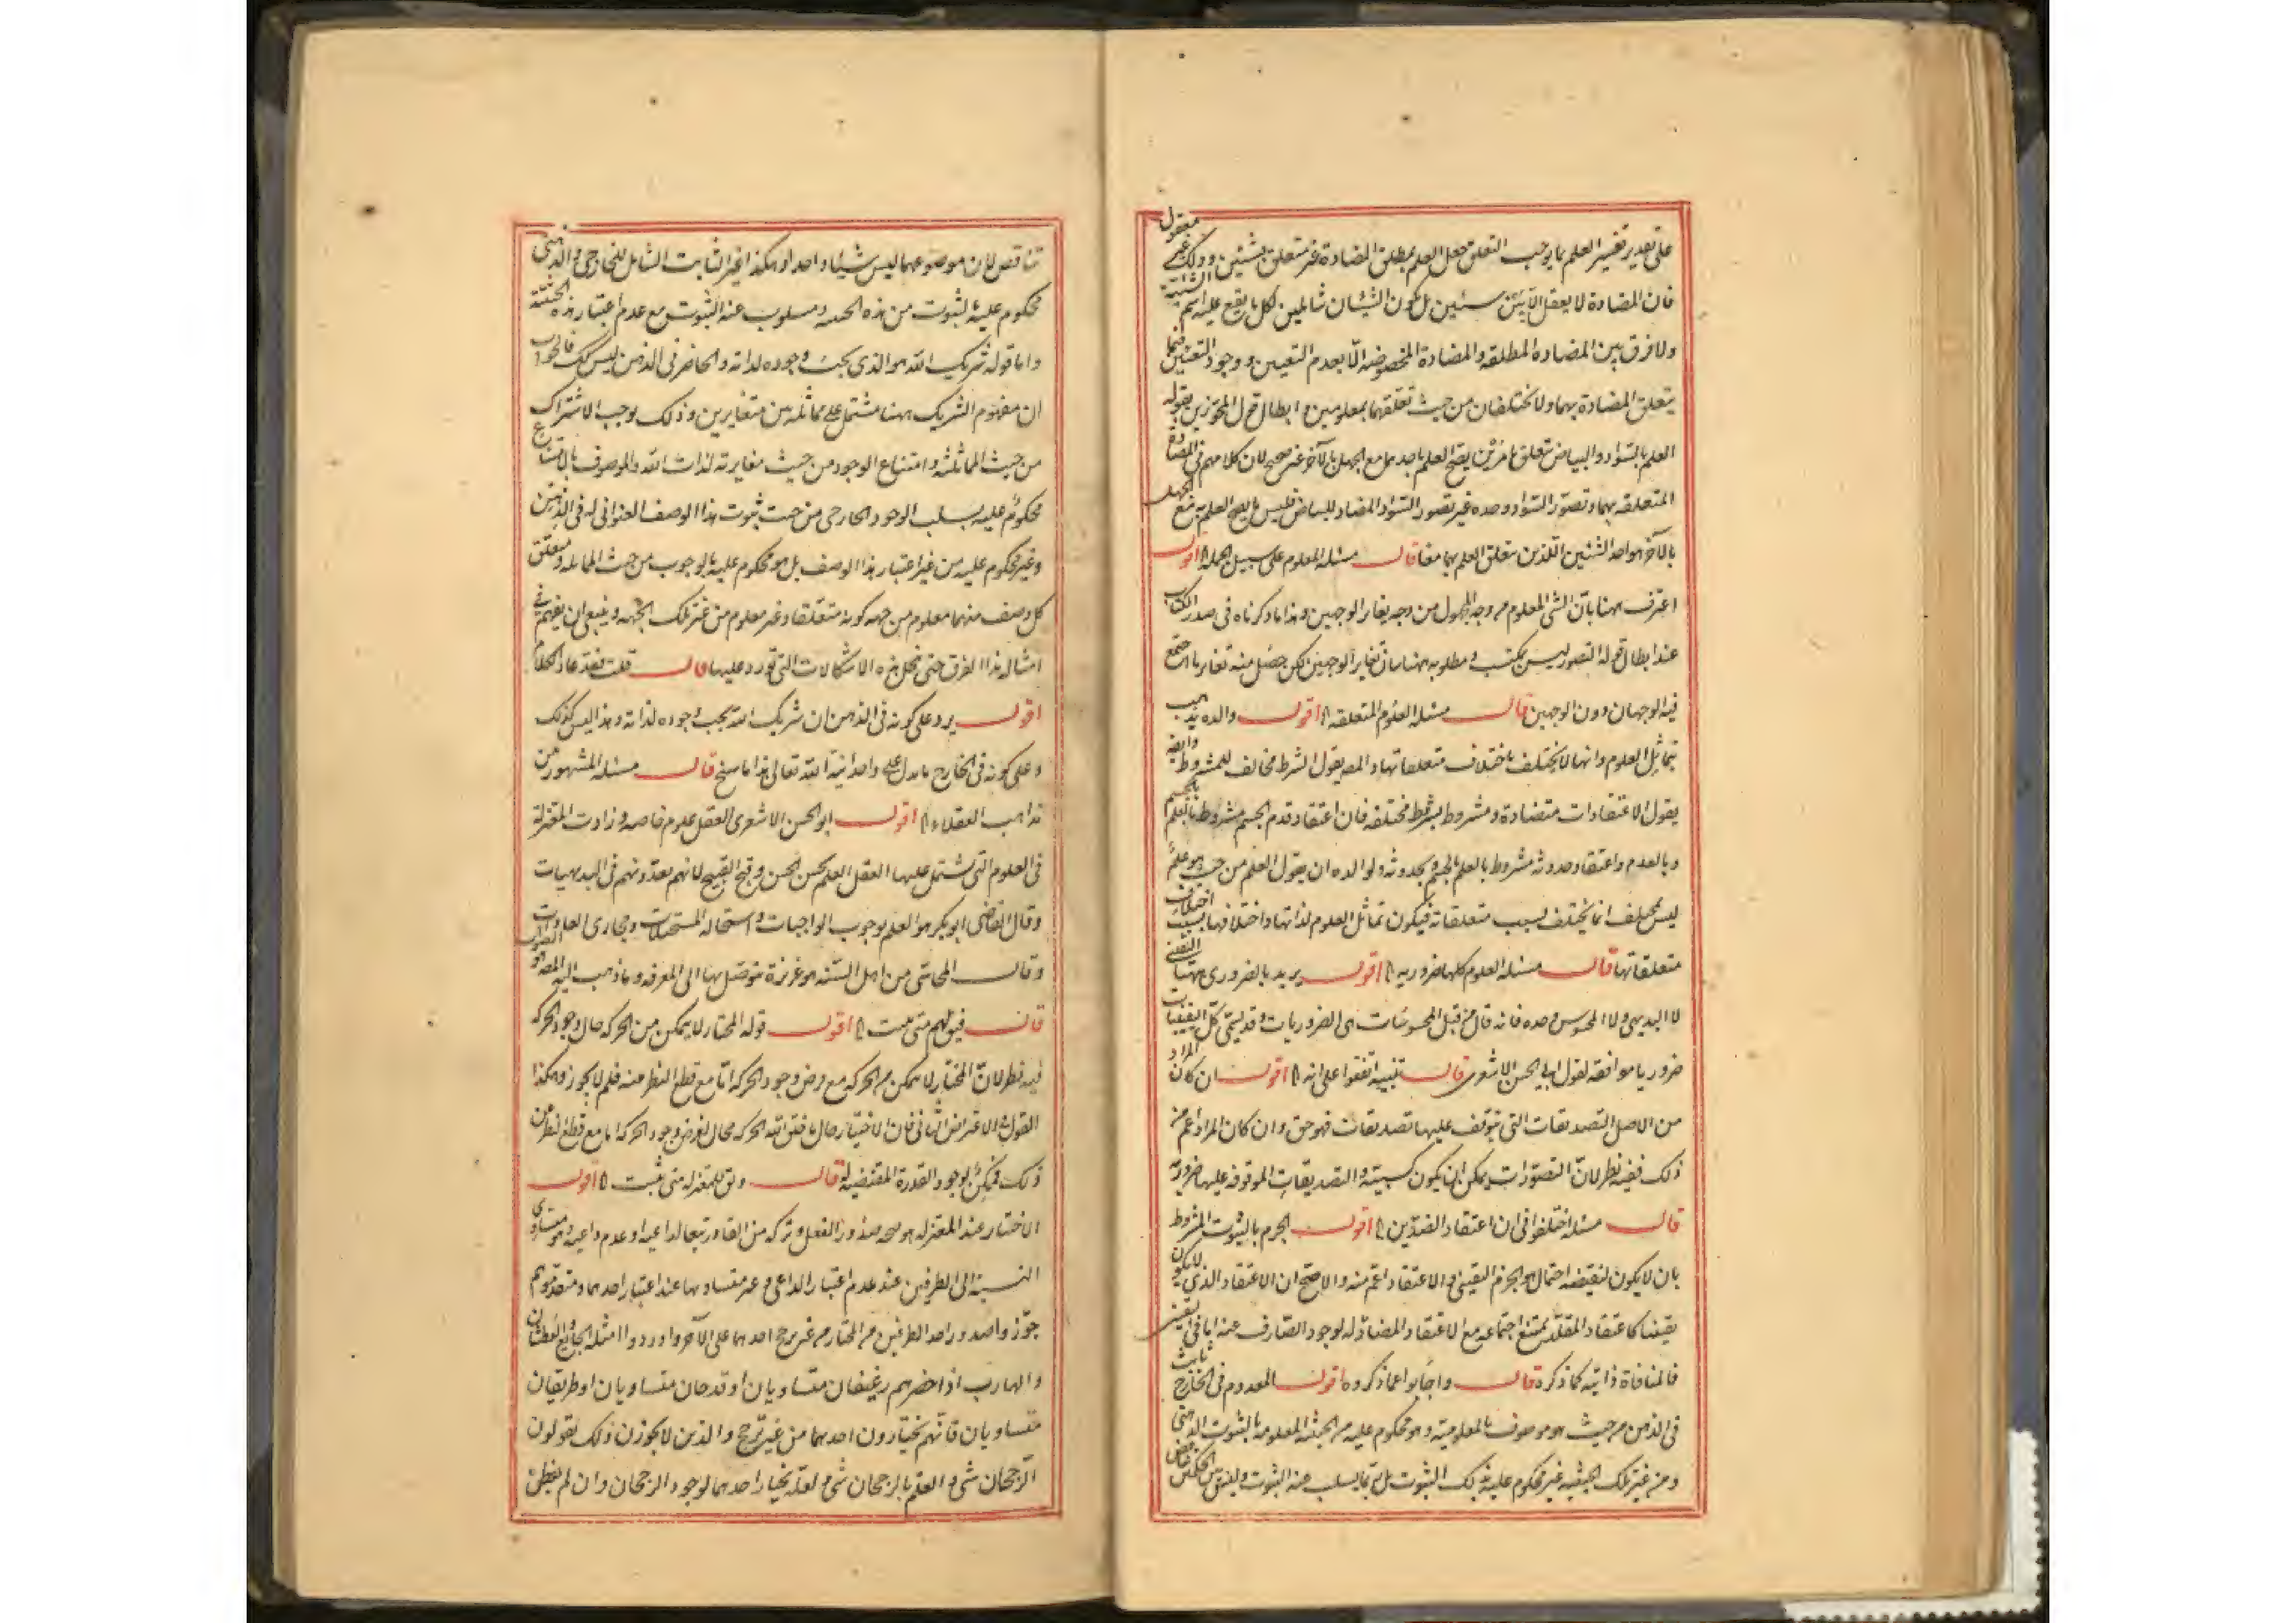 على تقدير تفسير العلم بما يوجب التعلق جعل العلم بمطلق المضادة غير متعلق بشيئين وذلك غير معقول
فان المضادة لا يعقل الا بين شيئين بل يكون الشيئان شاملين لكل ما يقع عليه اسم الشيئية
ولا فرق بين المضادة المطلقة والمضادة المخصوصة الا بعدم التعيين ووجود التعيين فيما
يتعلق المضادة بهما ولا يختلفان من حيث تعلقهما بمعلومين وابطال قول المجوزين بقوله
العلم بالسواد والبياض تعلق بامرين يصح العلم باحدهما مع الجهل بالآخر غير صحيح لان كلامهم في المضادة
المتعلقة بهما وتصور السواد وحده غير تصور السواد المضاد للبياض فليس ما يصح العلم به مع الجهل
بالآخر هو احد الشيئين اللذين تعلق العلم بهما معا قال مسئلة المعلوم على سبيل الجملة الخ اقول
اعترف ههنا بان الشئ المعلوم من وجه المجهول من وجه يغاير الوجهين وهذا ما ذكرناه في صدر الكتاب
عند ابطال قوله التصور ليس بمكتسب ومطلوبه ههنا بيان تغاير الوجهين لكن حصل منه تغاير ما اجتمع
فيه الوجهان دون الوجهين قال مسئلة العلوم المتعلقة الخ اقول والده يذهب
بتماثل العلوم وانها لا يختلف باختلاف متعلقاتها والمصنف يقول الشرط مخالف للمشروط وايضا
يقول الاعتقادات متضادة ومشروط بشرط مختلفة فان اعتقاد قدم الجسم مشروط بالعلم بالجسم
وبالعدم واعتقاد حدوثه مشروط بالعلم بالجسم وبحدوثه ولوالده ان يقول العلم من حيث هو علم
ليس بمختلف انما يختلف بسبب متعلقاته فيكون تماثل العلوم لذاتها واختلافها بسبب اختلاف
متعلقاتها قال مسئلة العلوم كلها ضرورية الخ اقول يريد بالضروري ههنا اليقيني
لا البديهي ولا المحسوس وحده فانه قال من قبل المحسوسات هي الضروريات وقد يسمى كل اليقينيات
ضروريا موافقة لقول ابي الحسن الاشعري قال تنبيه اتفقوا على انه الخ اقول ان كان المراد
من الاصل التصديقات التي يتوقف عليها تصديقات فهو حق وان كان المراد اعم من
ذلك ففيه نظر لان التصورات يمكن ان يكون كسبية والتصديقات الموقوفة عليها ضرورية
قال مسئلة اختلفوا في ان اعتقاد الضدين الخ اقول الجزم بالثبوت المشروط
بان لا يكون لنقيضه احتمال هو الجزم اليقيني والاعتقاد اعم منه والاصح ان الاعتقاد الذي لا يكون
يقينيا كاعتقاد المقلد يمتنع اجتماعه مع الاعتقاد المضاد له لوجود الصارف عنه اما في اليقيني
فالمنافاة ذاتية كما ذكره قال واجابوا عما ذكروه اقول المعدوم في الخارج ثابت
في الذهن من حيث هو موصوف بالمعلومية وهو محكوم عليه من الحيثية المعلومة بالثبوت الذهني
ومن غير تلك الحيثية غير محكوم عليه بذلك الثبوت بل ربما يسلب عنه الثبوت وليس بين الحكمين تناقض
تناقض لان موضوعهما ليس شيئا واحدا وهكذا غير الثابت الشامل للخارجي والذهني
محكوم عليه بالثبوت من هذه الحيثية ومسلوب عنه الثبوت مع عدم اعتبار هذه الحيثية
واما قوله شريك الله هو الذي يجب وجوده لذاته والحاضر في الذهن ليس كذلك فالجواب
ان مفهوم الشريك ههنا مشتمل على مماثلة من متغايرين وذلك يوجب الاشتراك
من حيث المماثلة وامتناع الوجود من حيث مغايرته لذات الله والموصوف بالامتناع
محكوم عليه بسلب الوجود الخارجي من حيث ثبوت هذا الوصف العنواني له في الذهن
وغير محكوم عليه من غير اعتبار هذا الوصف بل هو محكوم عليه بالوجوب من حيث المماثلة ومتعلق
كل وصف منهما معلوم من جهة كونه متعلقا وغير معلوم من غير تلك الجهة وينبغي ان يفهم في
امثاله هذا الفرق حتى ينحل هذه الاشكالات التي تورد عليها قال قلت فقد عاد الكلام
اقول يرد على كونه في الذهن ان شريك الله يجب وجوده لذاته وهذا ليس كذلك
وعلى كونه في الخارج ما دل على واحدانية الله تعالى هذا ما سنح قال مسئلة المشهور من
مذاهب العقلاء الخ اقول ابو الحسن الاشعري العقل علوم خاصة وزادت المعتزلة
في العلوم التي يشتمل عليها العقل العلم بحسن الحسن وقبح القبيح لانهم يعدونهم في البديهيات
وقال القاضي ابو بكر هو العلم بوجوب الواجبات واستحالة المستحيلات ومجاري العادات
وقال المحاسبي من اهل السنة هو غريزة يتوصل بها الى المعرفة وما ذهب اليه المصنف هو الصواب
قال فيقولهم متى ثبت الخ اقول قوله المختار لا يتمكن من الحركة حال وجود الحركة
فيه نظر لان المختار لا يتمكن من الحركة مع فرض وجود الحركة اما مع قطع النظر عنه فلم لا يجوز وهكذا
القول في الاعتراض الثاني فان الاختيار حال ما خلق الله الحركة محال لفرض وجود الحركة اما مع قطع النظر عن
ذلك فممكن لوجود القدرة المقتضية له قال وق للمعتزلة متى ثبت الخ اقول
الاختيار عند المعتزلة هو صحة صدور الفعل وتركه من القادر تبعا لداعيه او عدم داعيه وهو متساوي
النسبة الى الطرفين عند عدم اعتبار الداعي وغير متساويها عند اعتبار احدهما ومتقدموهم
جوزوا صدور احد الطرفين من المختار من غير ترجح احدهما على الآخر واوردوا امثلة الجائع والعطشان
والهارب اذا حضرهم رغيفان متساويان او قدحان متساويان او طريقان
متساويان فانهم يختارون احدهما من غير ترجح والذين لا يجوزون ذلك يقولون
الرجحان شئ والعلم بالرجحان شئ ولعله يختار احدهما لوجود الرجحان وان لم يفطن